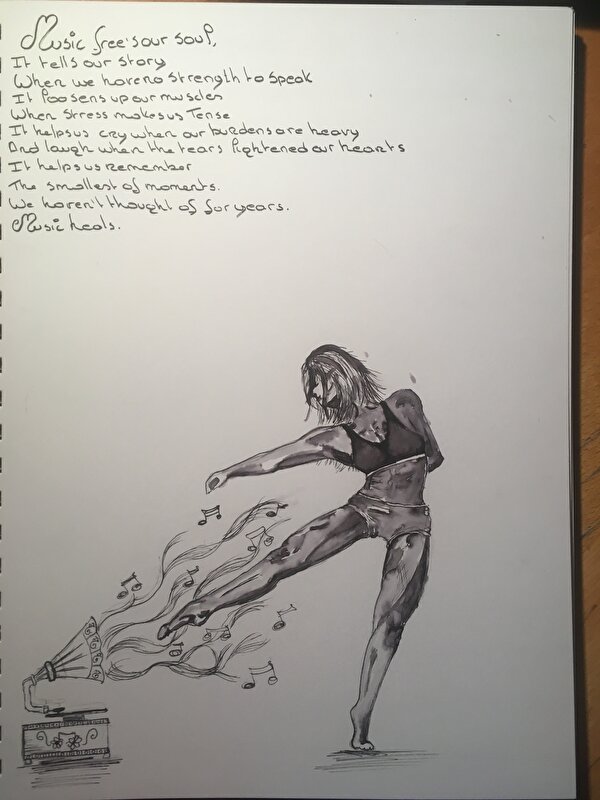 Music free's our soul,
It tells our story
When we have no strength to speak
It loosens up our muscles
When stress makes us Tense
It helps us cry when our burdens are heavy
And laugh when the tears lightened our hearts
It helps us remember
The smallest of moments.
We haven't thought of for years.
Music heals.